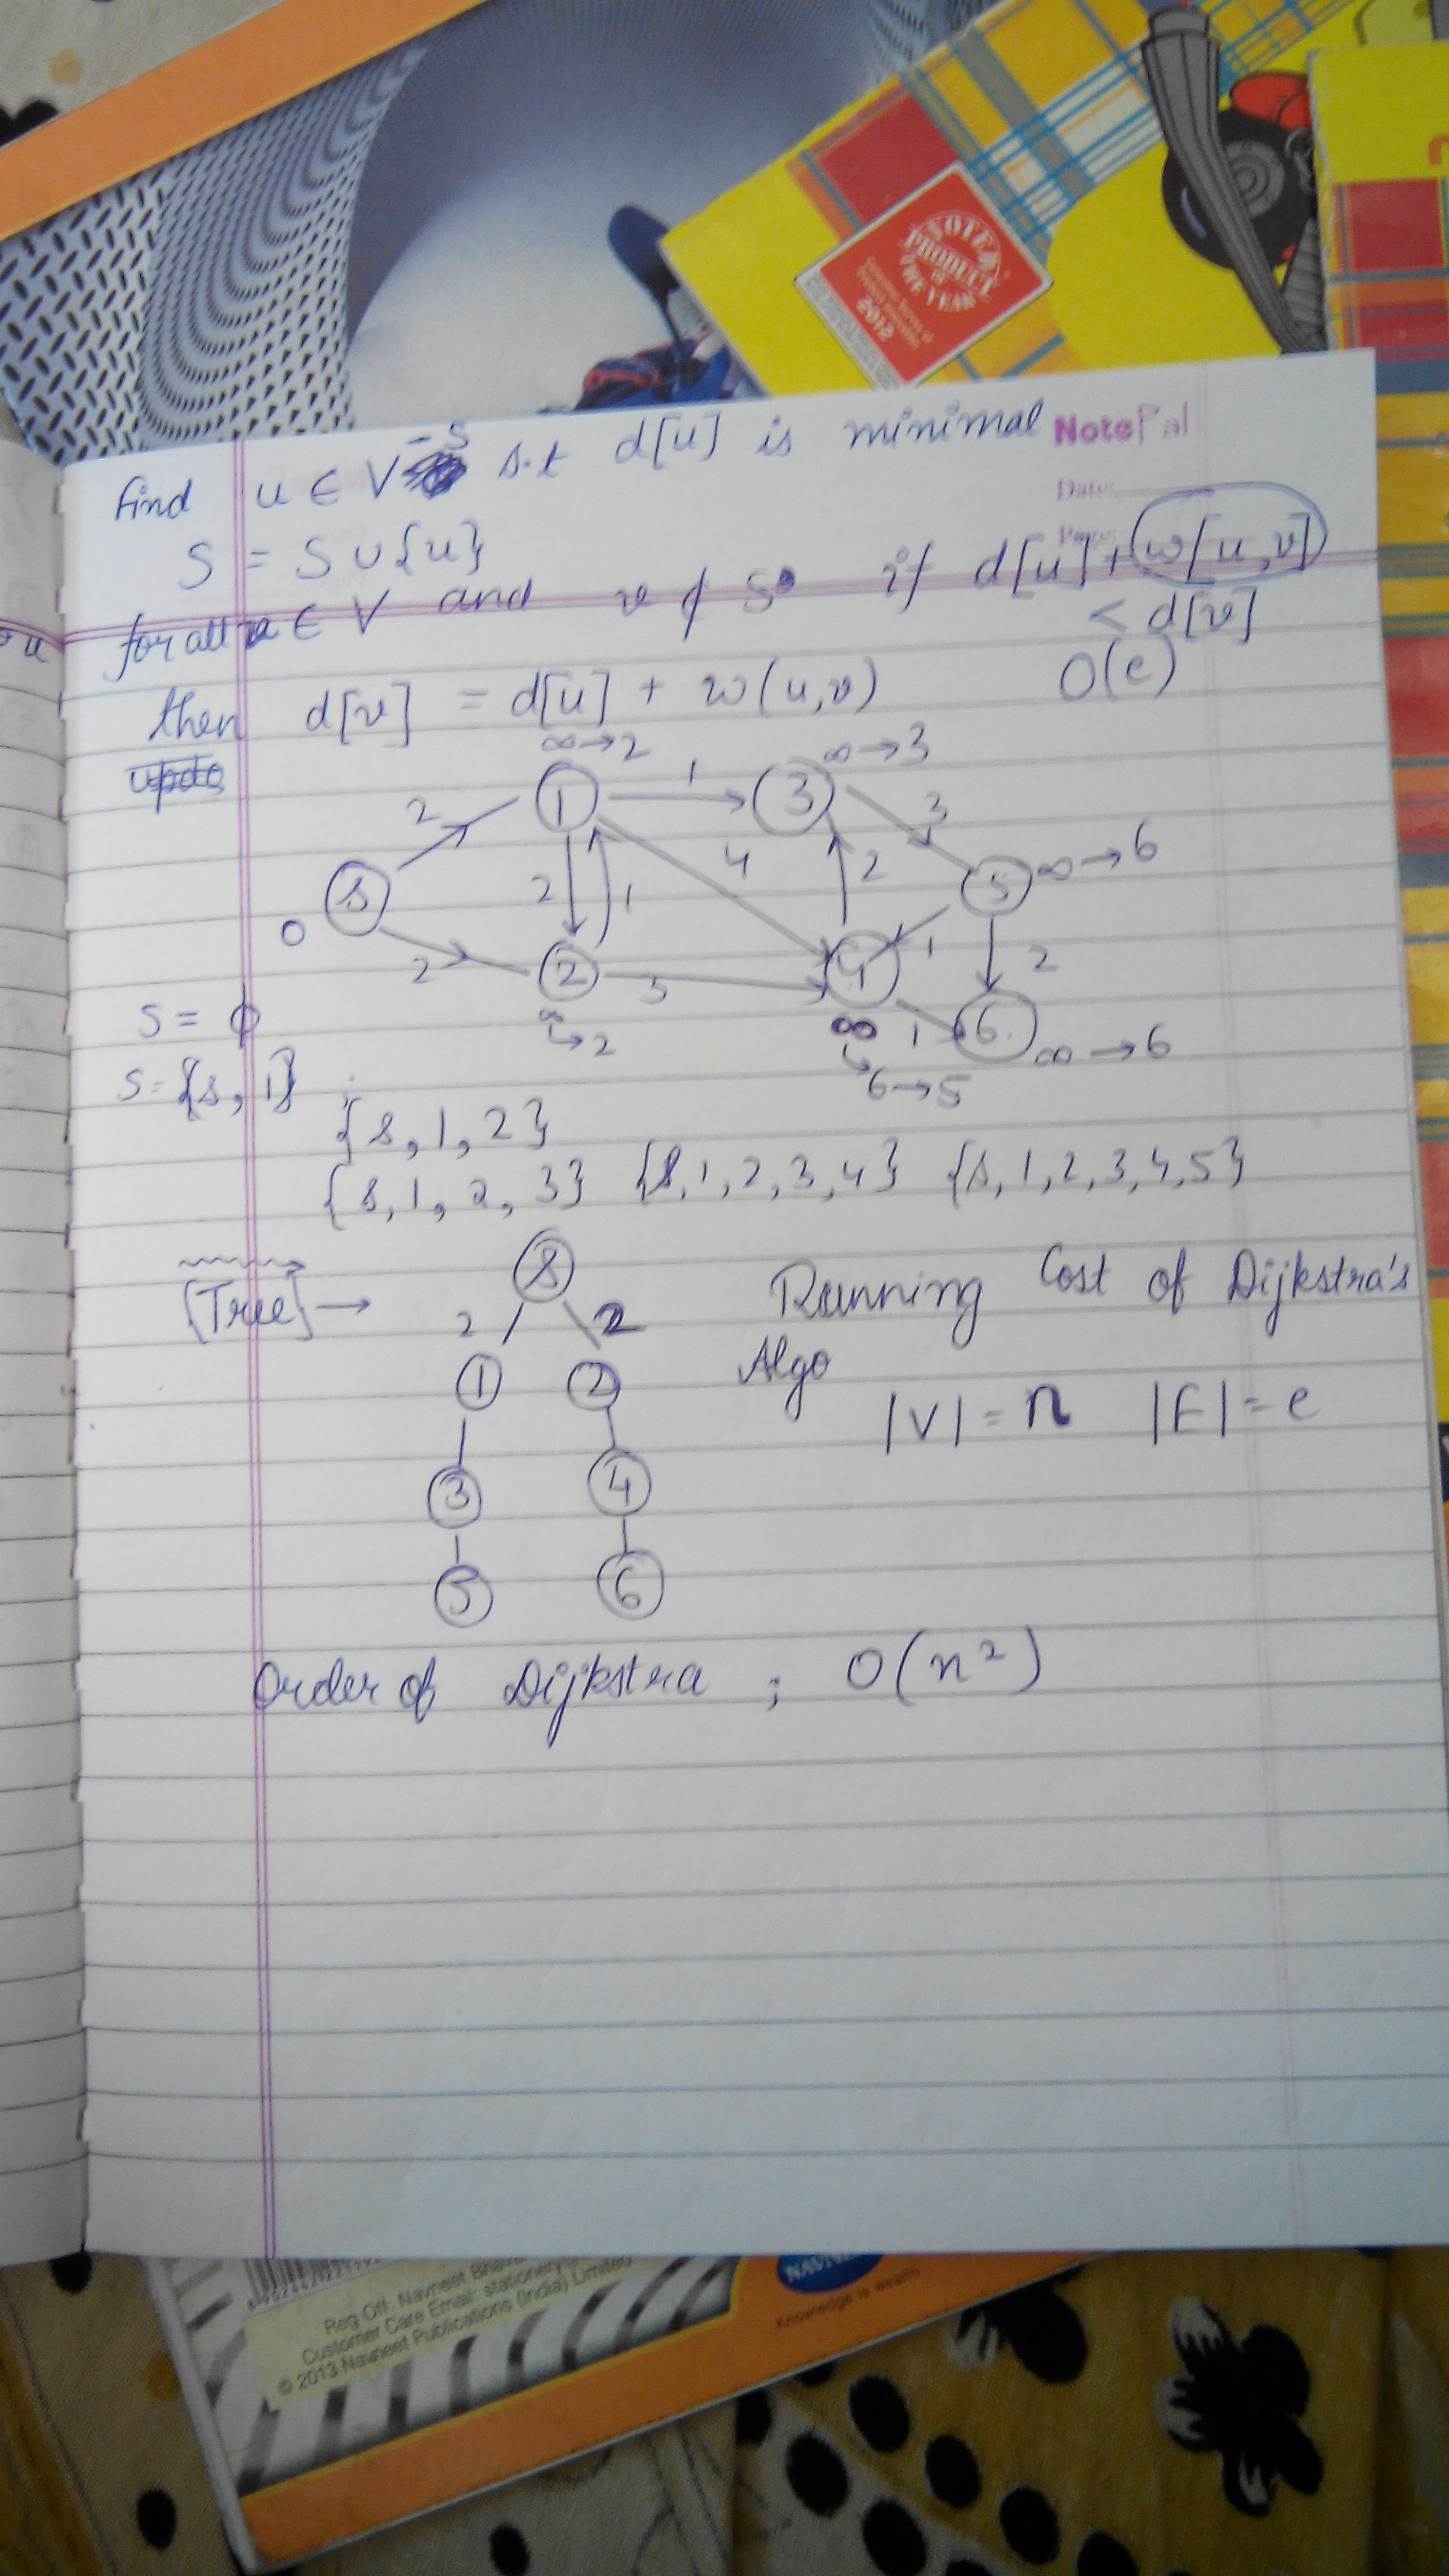 VOTED
PRODUCT
OF
THE YEAR
2012
find u ∈ V - S s.t d[u] is minimal
NotePal
Date:
Page:
S = S ∪ {u}
for all v ∈ V and v ∉ S if d[u] + w[u,v]
< d[v]
then d[v] = d[u] + w(u,v) O(e)
∞→2 ∞→3
2 1 1 3 3
s 4 2 5 ∞→6
0 2 1
2 2 5 4 1 2
∞ ↳2 ∞ 1 6 ∞→6
↳6→5
S = ϕ
S = {s, 1}
{s, 1, 2}
{s, 1, 2, 3} {s, 1, 2, 3, 4} {s, 1, 2, 3, 4, 5}
[Tree] →
s
2 2
1 2
3 4
5 6
Running Cost of Dijkstra's
Algo
|V| = n |E| = e
Order of Dijkstra ; O(n²)
Reg Off: Navneet Bhava
Customer Care Email: stationery@
© 2013 Navneet Publications (India) Limited
NAVN
Knowledge is wealth